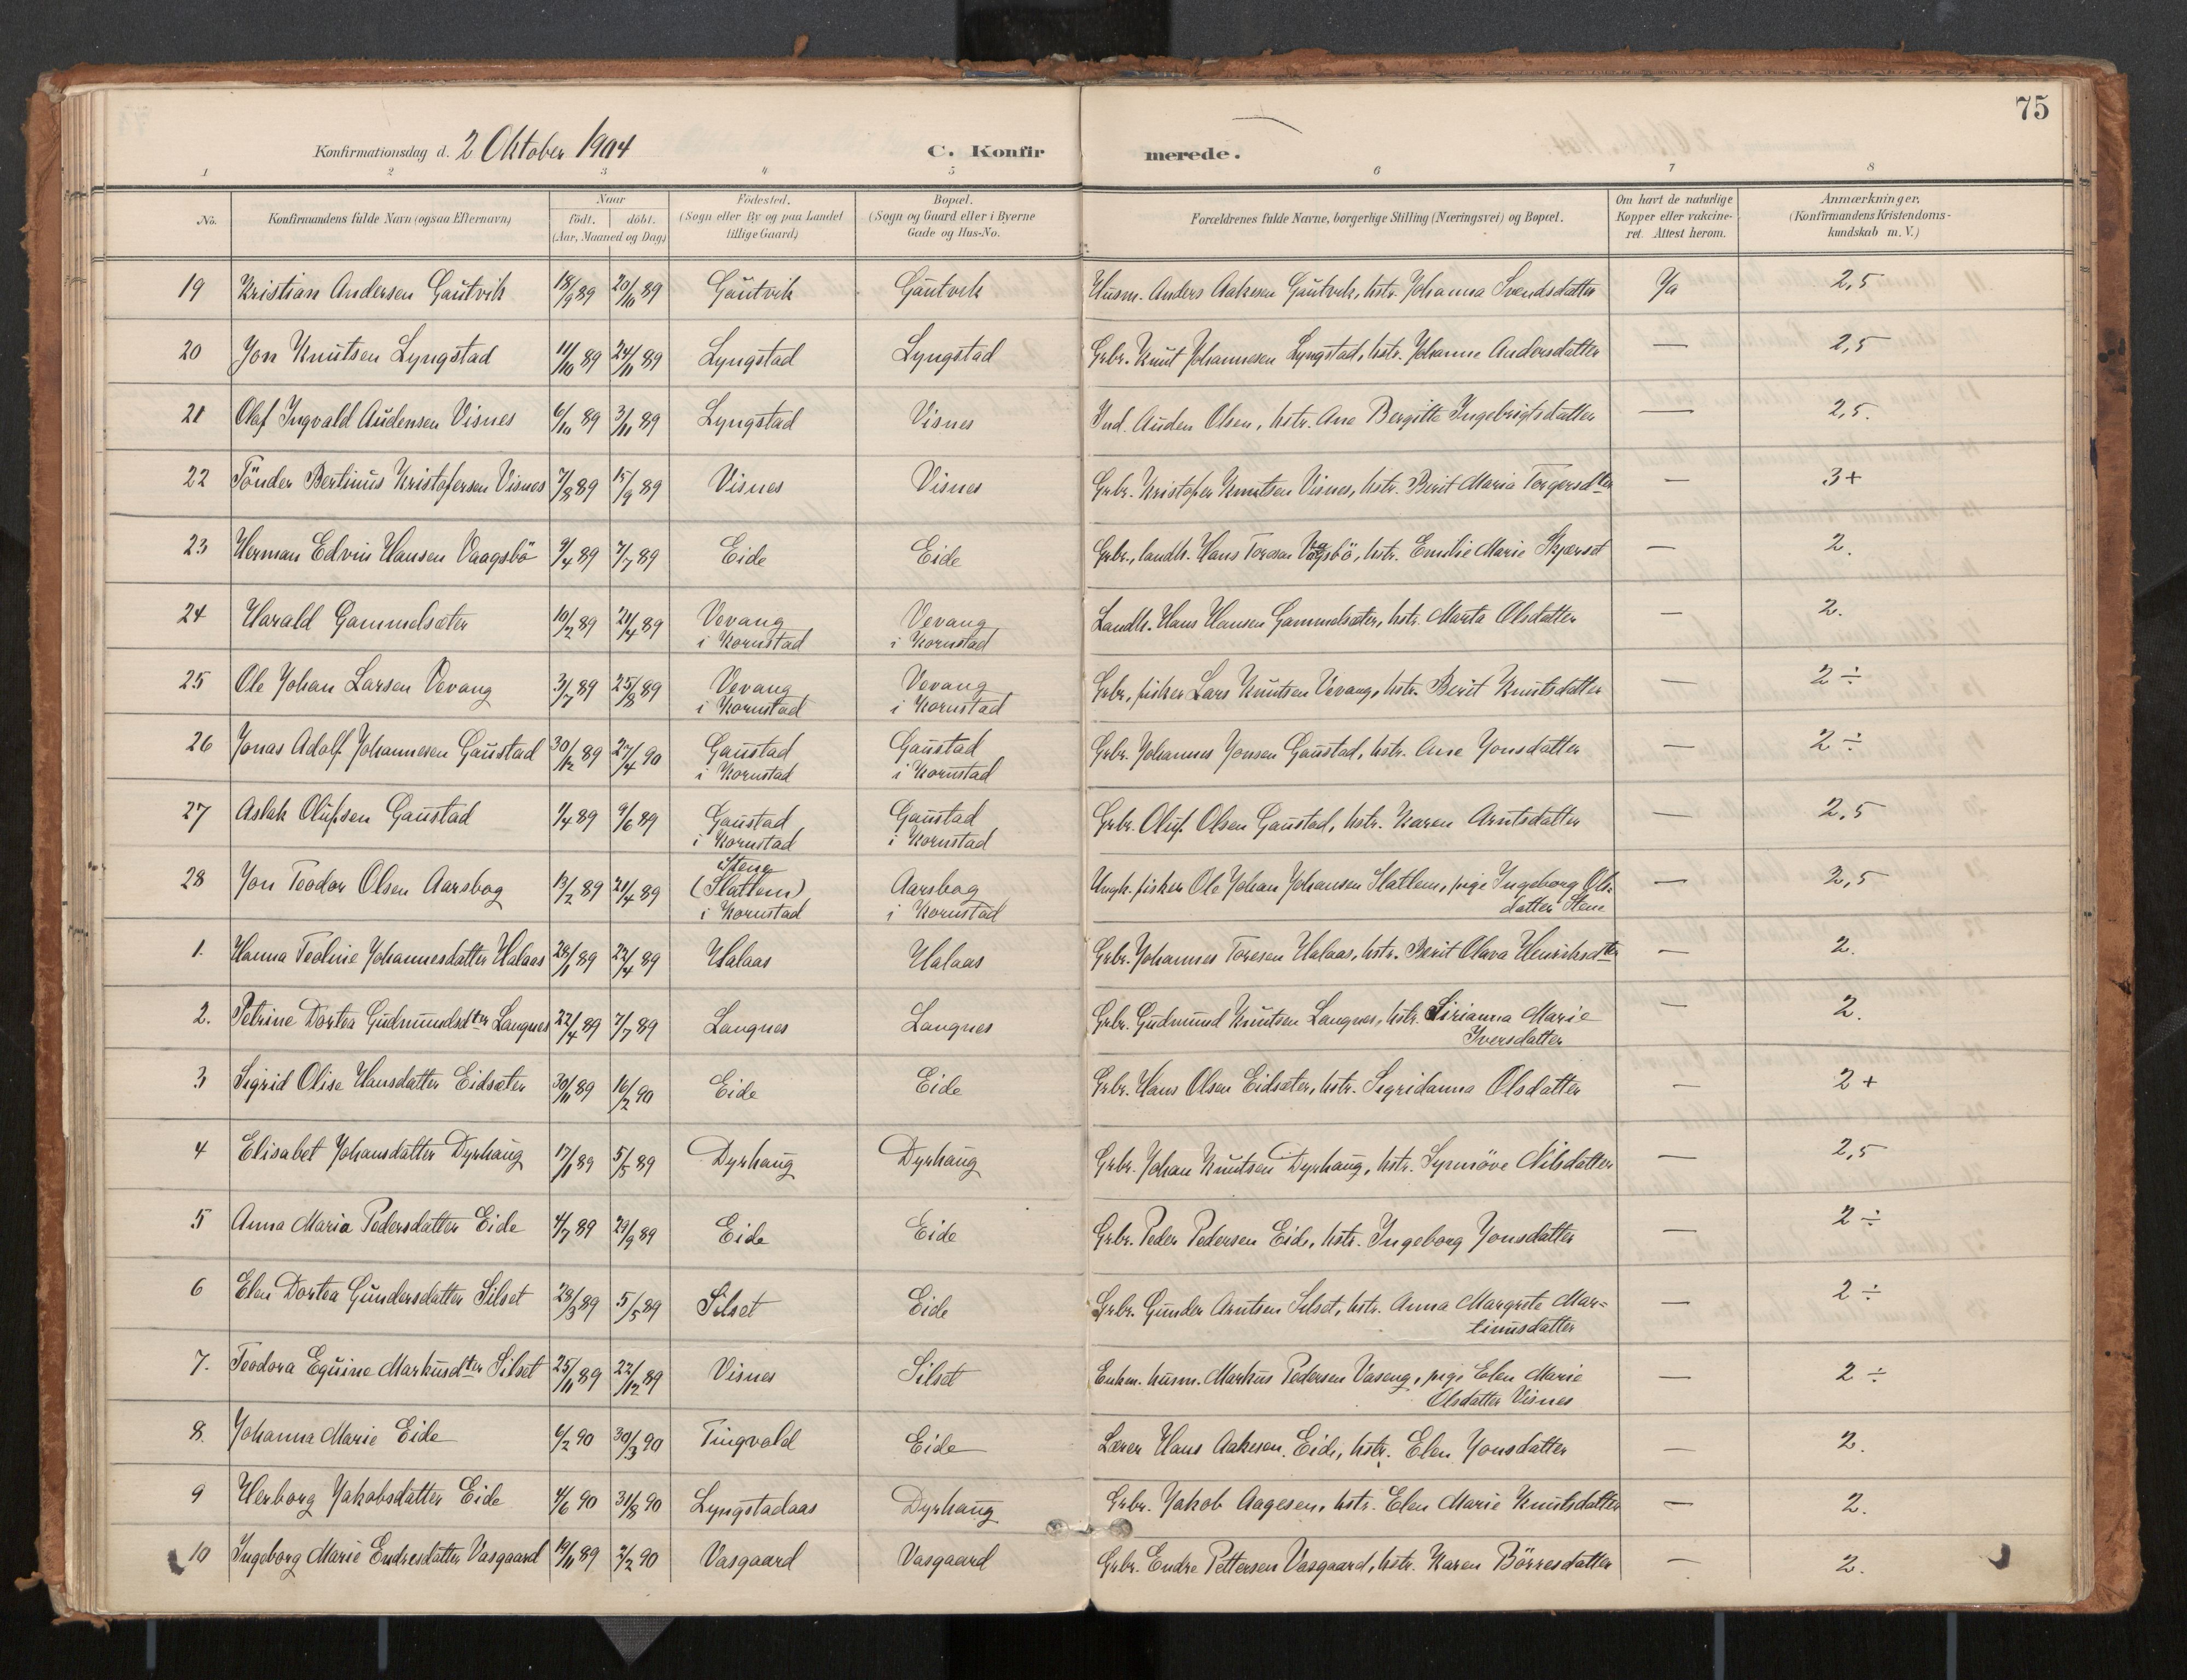 75
Konfirmationsdag d. 2 Oktober 1904 C. Konfirmerede.
1 2 3 4 5 6 7 8
No. Konfirmandens fulde Navn (ogsaa Efternavn) Naar födt. döbt. (Aar, Maaned og Dag) Födested. (Sogn eller By og paa Landet tillige Gaard) Bopæl. (Sogn og Gaard eller i Byerne Gade og Hus-No. Forældrenes fulde Navne, borgerlige Stilling (Næringsvei) og Bopæl. Om havt de naturlige Kopper eller vakcineret. Attest herom. Anmærkninger, (Konfirmandens Kristendomskundskab m. V.)
19 Kristian Andersen Gautvik 18/9 89 20/10 89 Gautvik Gautvik Husm. Anders Aakesen Gautvik, hstr. Johanna Svendsdatter Ja 2,5
20 Jon Knutsen Lyngstad 11/10 89 24/11 89 Lyngstad Lyngstad Grbr. Knut Johannesen Lyngstad, hstr. Johanne Andersdatter — 2,5
21 Olaf Ingvald Audensen Visnes 6/10 89 3/11 89 Lyngstad Visnes Ind. Auden Olsen, hstr. Ane Bergitte Ingebrigtsdatter — 2,5.
22 Tönder Bertinus Kristofersen Visnes 7/8 89 15/9 89 Visnes Visnes Grbr. Kristofer Knutsen Visnes, hstr. Berit Maria Torgersdter — 3+
23 Herman Edvin Hansen Vaagsbö 9/4 89 7/7 89 Eide Eide Grbr., landh. Hans Toresen Vaagsbö, hstr. Emilie Marie Skjerset — 2.
24 Harald Gammelsæter 10/2 89 21/4 89 Vevang i Kornstad Vevang i Kornstad Landh. Hans Hansen Gammelsæter, hstr. Marta Olsdatter — 2.
25 Ole Johan Larsen Vevang 3/7 89 25/8 89 Vevang i Kornstad Vevang i Kornstad Grbr., fisker Lars Knutsen Vevang, hstr. Berit Knutsdatter — 2 ÷
26 Jonas Adolf Johannesen Gaustad 30/12 89 27/4 90 Gaustad i Kornstad Gaustad i Kornstad Grbr. Johannes Jonsen Gaustad, hstr. Ane Jonsdatter — 2 ÷
27 Aslak Olufsen Gaustad 1/4 89 9/6 89 Gaustad i Kornstad Gaustad i Kornstad Grbr. Oluf Olsen Gaustad, hstr. Karen Arntsdatter — 2,5
28 Jon Teodor Olsen Aarsbog 13/2 89 21/4 89 Stene (Slatlem) i Kornstad Aarsbog i Kornstad Ungk. fisker Ole Johan Johansen Slatlem, pige Ingeborg Ols-
datter Stene — 2,5
1. Hanna Teoline Johannesdatter Halaas 28/1 89 22/4 89 Halaas Halaas Grbr. Johannes Toresen Halaas, hstr. Berit Olava Henriksdter — 2.
2. Petrine Dortea Gudmundsdter Langnes 22/4 89 7/7 89 Langnes Langnes Grbr. Gudmund Knutsen Langnes, hstr. Sirianna Marie
Iversdatter — 2.
3 Sigrid Olise Hansdatter Eidsæter 30/11 89 16/2 90 Eide Eide Grbr. Hans Olsen Eidsæter, hstr. Sigridanna Olsdatter — 2 +
4 Elisabet Johansdatter Dyrhaug 17/1 89 5/5 89 Dyrhaug Dyrhaug Grbr. Johan Knutsen Dyrhaug, hstr. Synnöve Nilsdatter — 2,5
5 Anna Maria Pedersdatter Eide 4/7 89 29/9 89 Eide Eide Grbr. Peder Pedersen Eide, hstr. Ingeborg Jonsdatter — 2 ÷
6 Elen Dortea Gundersdatter Silset 28/3 89 5/5 89 Silset Eide Grbr. Gunder Arntsen Silset, hstr. Anna Margrete Mar=
tinusdatter — 2 ÷
7. Teodora Eguine Markusdter Silset 25/11 89 22/12 89 Visnes Silset Enkm. husm. Markus Pedersen Vaseng, pige Elen Marie
Olsdatter Visnes — 2 ÷
8. Johanna Marie Eide 6/2 90 30/3 90 Tingvold Eide Lærer Hans Aakesen Eide, hstr. Elen Jonsdatter — 2.
9 Herborg Jakobsdatter Eide 4/6 90 31/8 90 Lyngstadaas Dyrhaug Grbr. Jakob Aagesen, hstr. Elen Marie Knutsdatter — 2.
10 Ingeborg Marie Endresdatter Vasgaard 19/11 89 2/2 90 Vasgaard Vasgaard Grbr. Endre Pettersen Vasgaard, hstr. Karen Börresdatter — 2.